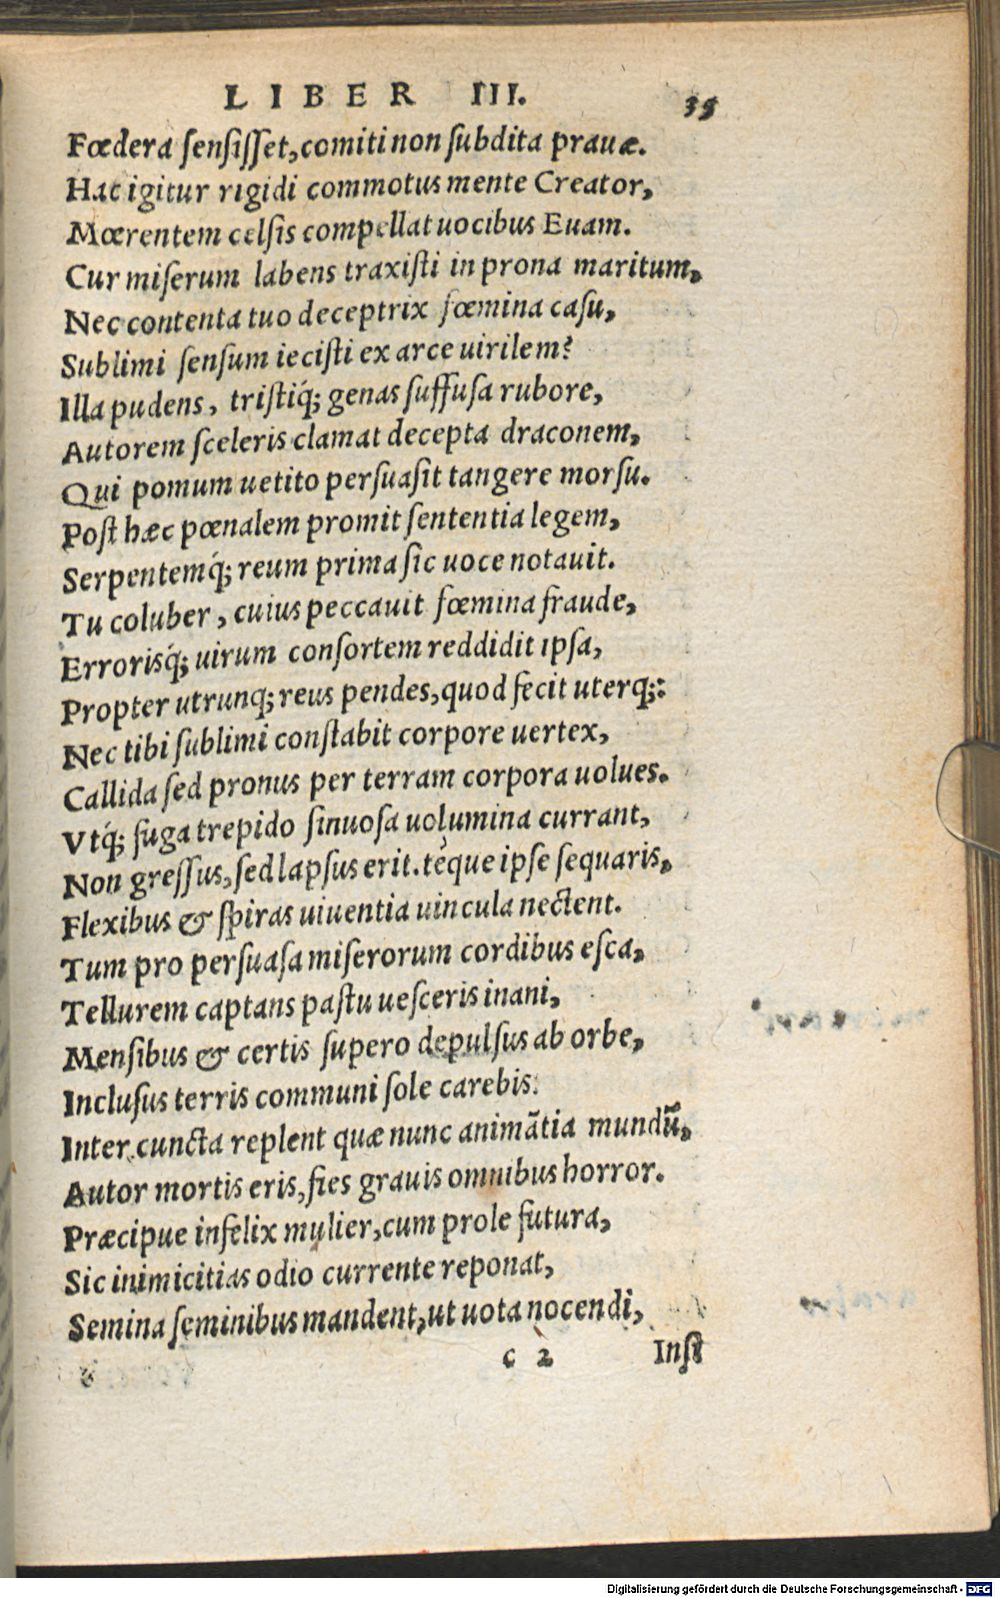 LIBER III. 35
Fœdera sensisset, comiti non subdita prauæ.
Hac igitur rigidi commotus mente Creator,
Mœrentem celsis compellat uocibus Euam.
Cur miserum labens traxisti in prona maritum,
Nec contenta tuo deceptrix fœmina casu,
Sublimi sensum iecisti ex arce uirilem?
Illa pudens, tristiq́; genas suffusa rubore,
Autorem sceleris clamat decepta draconem,
Qui pomum uetito persuasit tangere morsu.
Post hæc pœnalem promit sententia legem,
Serpentemq́; reum prima sic uoce notauit.
Tu coluber, cuius peccauit fœmina fraude,
Errorisq́; uirum consortem reddidit ipsa,
Propter utrunq; reus pendes, quod fecit uterq;:
Nec tibi sublimi constabit corpore uertex,
Callida sed pronus per terram corpora uolues.
Vtq́; fuga trepido sinuosa uolumina currant,
Non gressus, sed lapsus erit. téque ipse sequaris,
Flexibus & spiras uiuentia uincula nectent.
Tum pro persuasa miserorum cordibus esca,
Tellurem captans pastu uesceris inani,
Mensibus & certis supero depulsus ab orbe,
Inclusus terris communi sole carebis.
Inter cuncta replent quæ nunc animātia mundū,
Autor mortis eris, fies grauis omnibus horror.
Præcipue infelix mulier, cum prole futura,
Sic inimicitias odio currente reponat,
Semina seminibus mandent, ut uota nocendi,
c 2 Inst
Digitalisierung gefördert durch die Deutsche Forschungsgemeinschaft - DFG